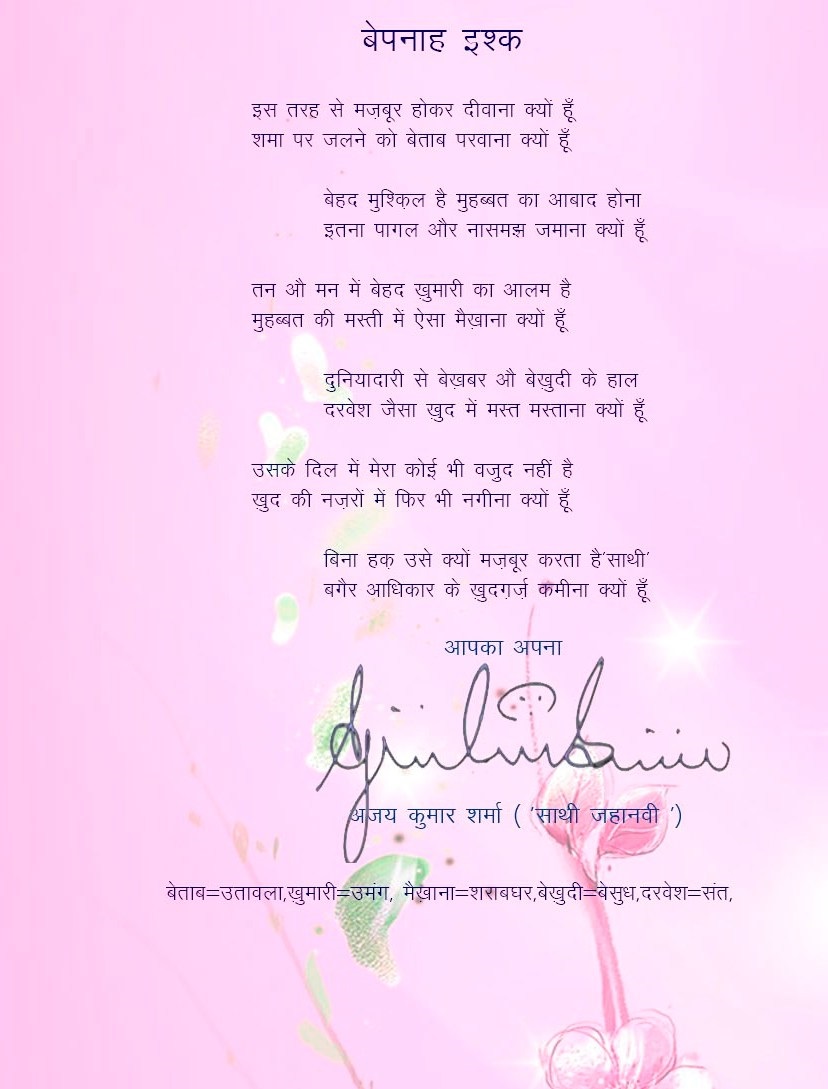 बेपनाह इश्क
इस तरह से मज़बूर होकर दीवाना क्यों हूँ
शमा पर जलने को बेताब परवाना क्यों हूँ
बेहद मुश्क़िल है मुहब्बत का आबाद होना
इतना पागल और नासमझ जमाना क्यों हूँ
तन औ मन में बेहद ख़ुमारी का आलम है
मुहब्बत की मस्ती में ऐसा मैख़ाना क्यों हूँ
दुनियादारी से बेख़बर औ बेख़ुदी के हाल
दरवेश जैसा ख़ुद में मस्त मस्ताना क्यों हूँ
उसके दिल में मेरा कोई भी वजुद नहीं है
ख़ुद की नज़रों में फिर भी नगीना क्यों हूँ
बिना हक़ उसे क्यों मज़बूर करता है'साथी'
बगैर आधिकार के ख़ुदग़र्ज़ कमीना क्यों हूँ
आपका अपना
अजय कुमार शर्मा ( 'साथी जहानवी ')
बेताब=उतावला,ख़ुमारी=उमंग, मैख़ाना=शराबघर,बेख़ुदी=बेसुध,दरवेश=संत,